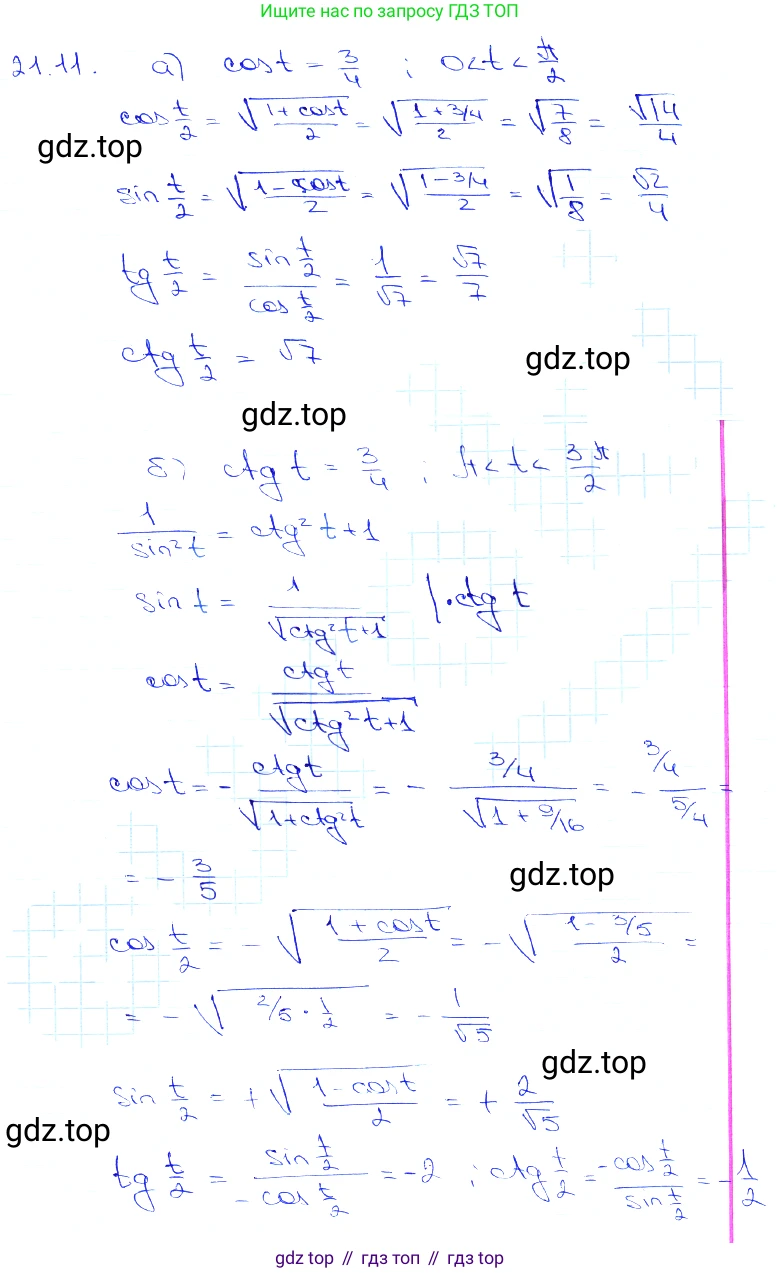 Ищите нас по запросу ГДЗ ТОП
21.11. а) cos t = 3/4 ; 0 < t < π/2
cos t/2 = √((1 + cos t)/2) = √((1 + 3/4)/2) = √(7/8) = √14/4
gdz.top
sin t/2 = √((1 - cos t)/2) = √((1 - 3/4)/2) = √(1/8) = √2/4
tg t/2 = (sin t/2)/(cos t/2) = 1/√7 = √7/7
ctg t/2 = √7
gdz.top
gdz.top
б) ctg t = 3/4 ; π < t < 3π/2
1/(sin² t) = ctg² t + 1
sin t = 1/√(ctg² t + 1) | · ctg t
cos t = ctg t/√(ctg² t + 1)
cos t = - ctg t/√(1 + ctg² t) = - (3/4)/√(1 + 9/16) = - (3/4)/(5/4) =
= - 3/5
gdz.top
cos t/2 = - √((1 + cos t)/2) = - √((1 - 3/5)/2) =
= - √(2/5 · 1/2) = - 1/√5
gdz.top
sin t/2 = + √((1 - cos t)/2) = + 2/√5
gdz.top
tg t/2 = (sin t/2)/(- cos t/2) = -2 ; ctg t/2 = (- cos t/2)/(sin t/2) = - 1/2
gdz top // гдз топ // gdz top